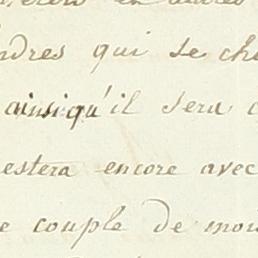 ndres qui se ch
ainsi qu'il sera
estera encore avec
e couple de mou